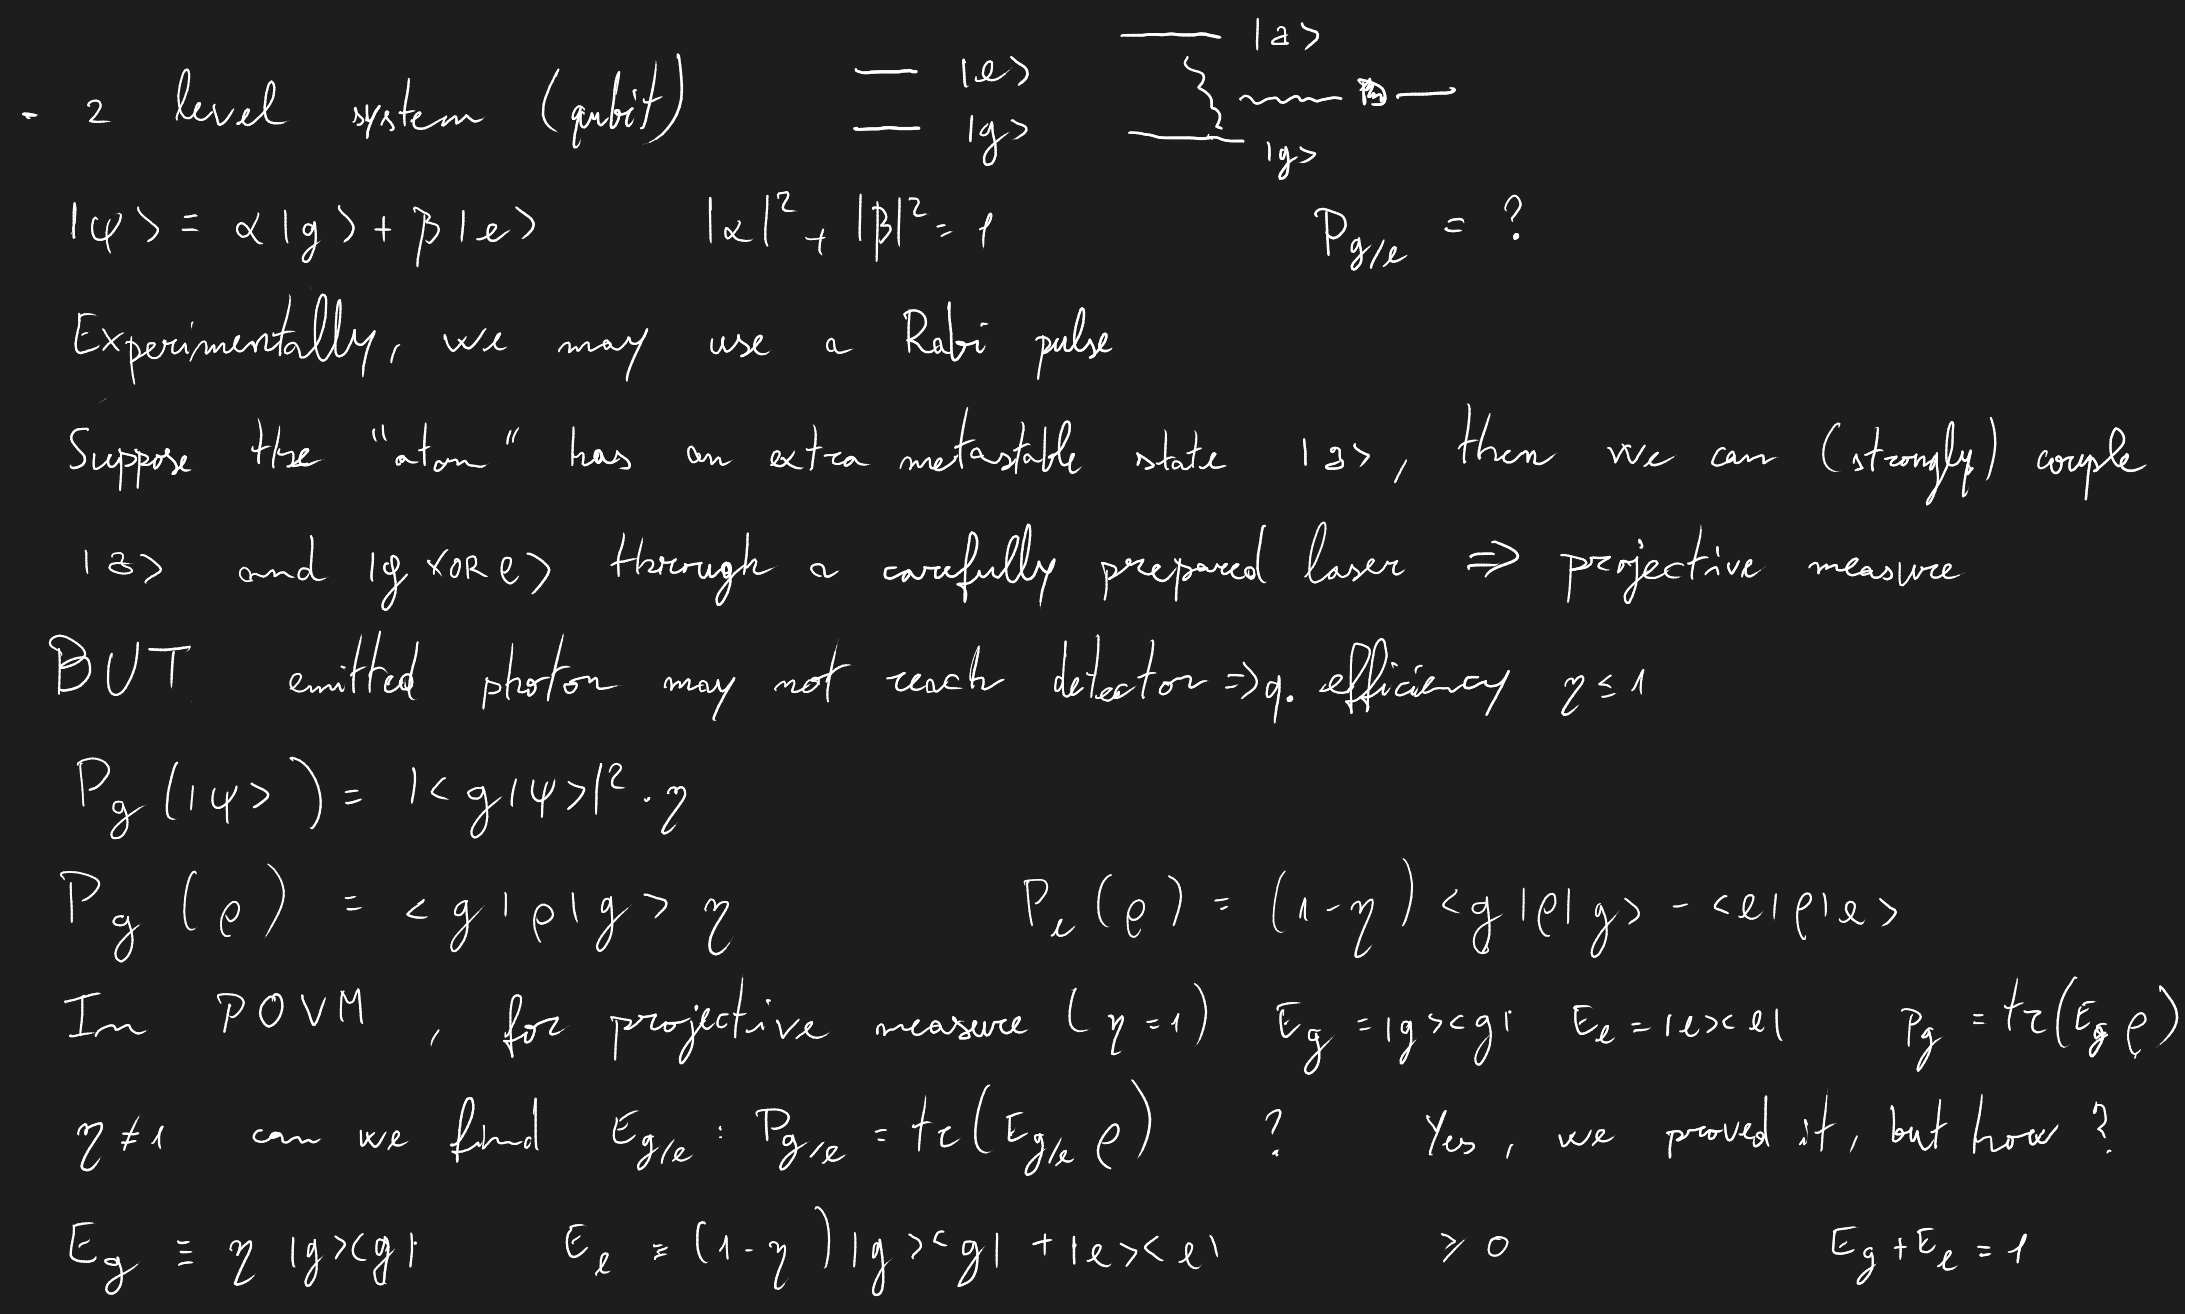 - 2 level system (qubit) |e> |g> |a> |g>
|ψ> = α|g> + β|e> |α|² + |β|² = 1 P_{g/e} = ?
Experimentally, we may use a Rabi pulse
Suppose the "atom" has an extra metastable state |a>, then we can (strongly) couple
|a> and |g XOR e> through a carefully prepared laser ⇒ projective measure
BUT emitted photon may not reach detector ⇒ q. efficiency η ≤ 1
P_g (|ψ>) = |<g|ψ>|² · η
P_g (ρ) = <g|ρ|g> η P_e (ρ) = (1-η) <g|ρ|g> - <e|ρ|e>
In POVM, for projective measure (η=1) E_g = |g><g| E_e = |e><e| P_g = tr(E_g ρ)
η ≠ 1 can we find E_{g/e} : P_{g/e} = tr(E_{g/e} ρ) ? Yes, we proved it, but how?
E_g ≡ η |g><g| E_e ≡ (1-η) |g><g| + |e><e| ≥ 0 E_g + E_e = 1